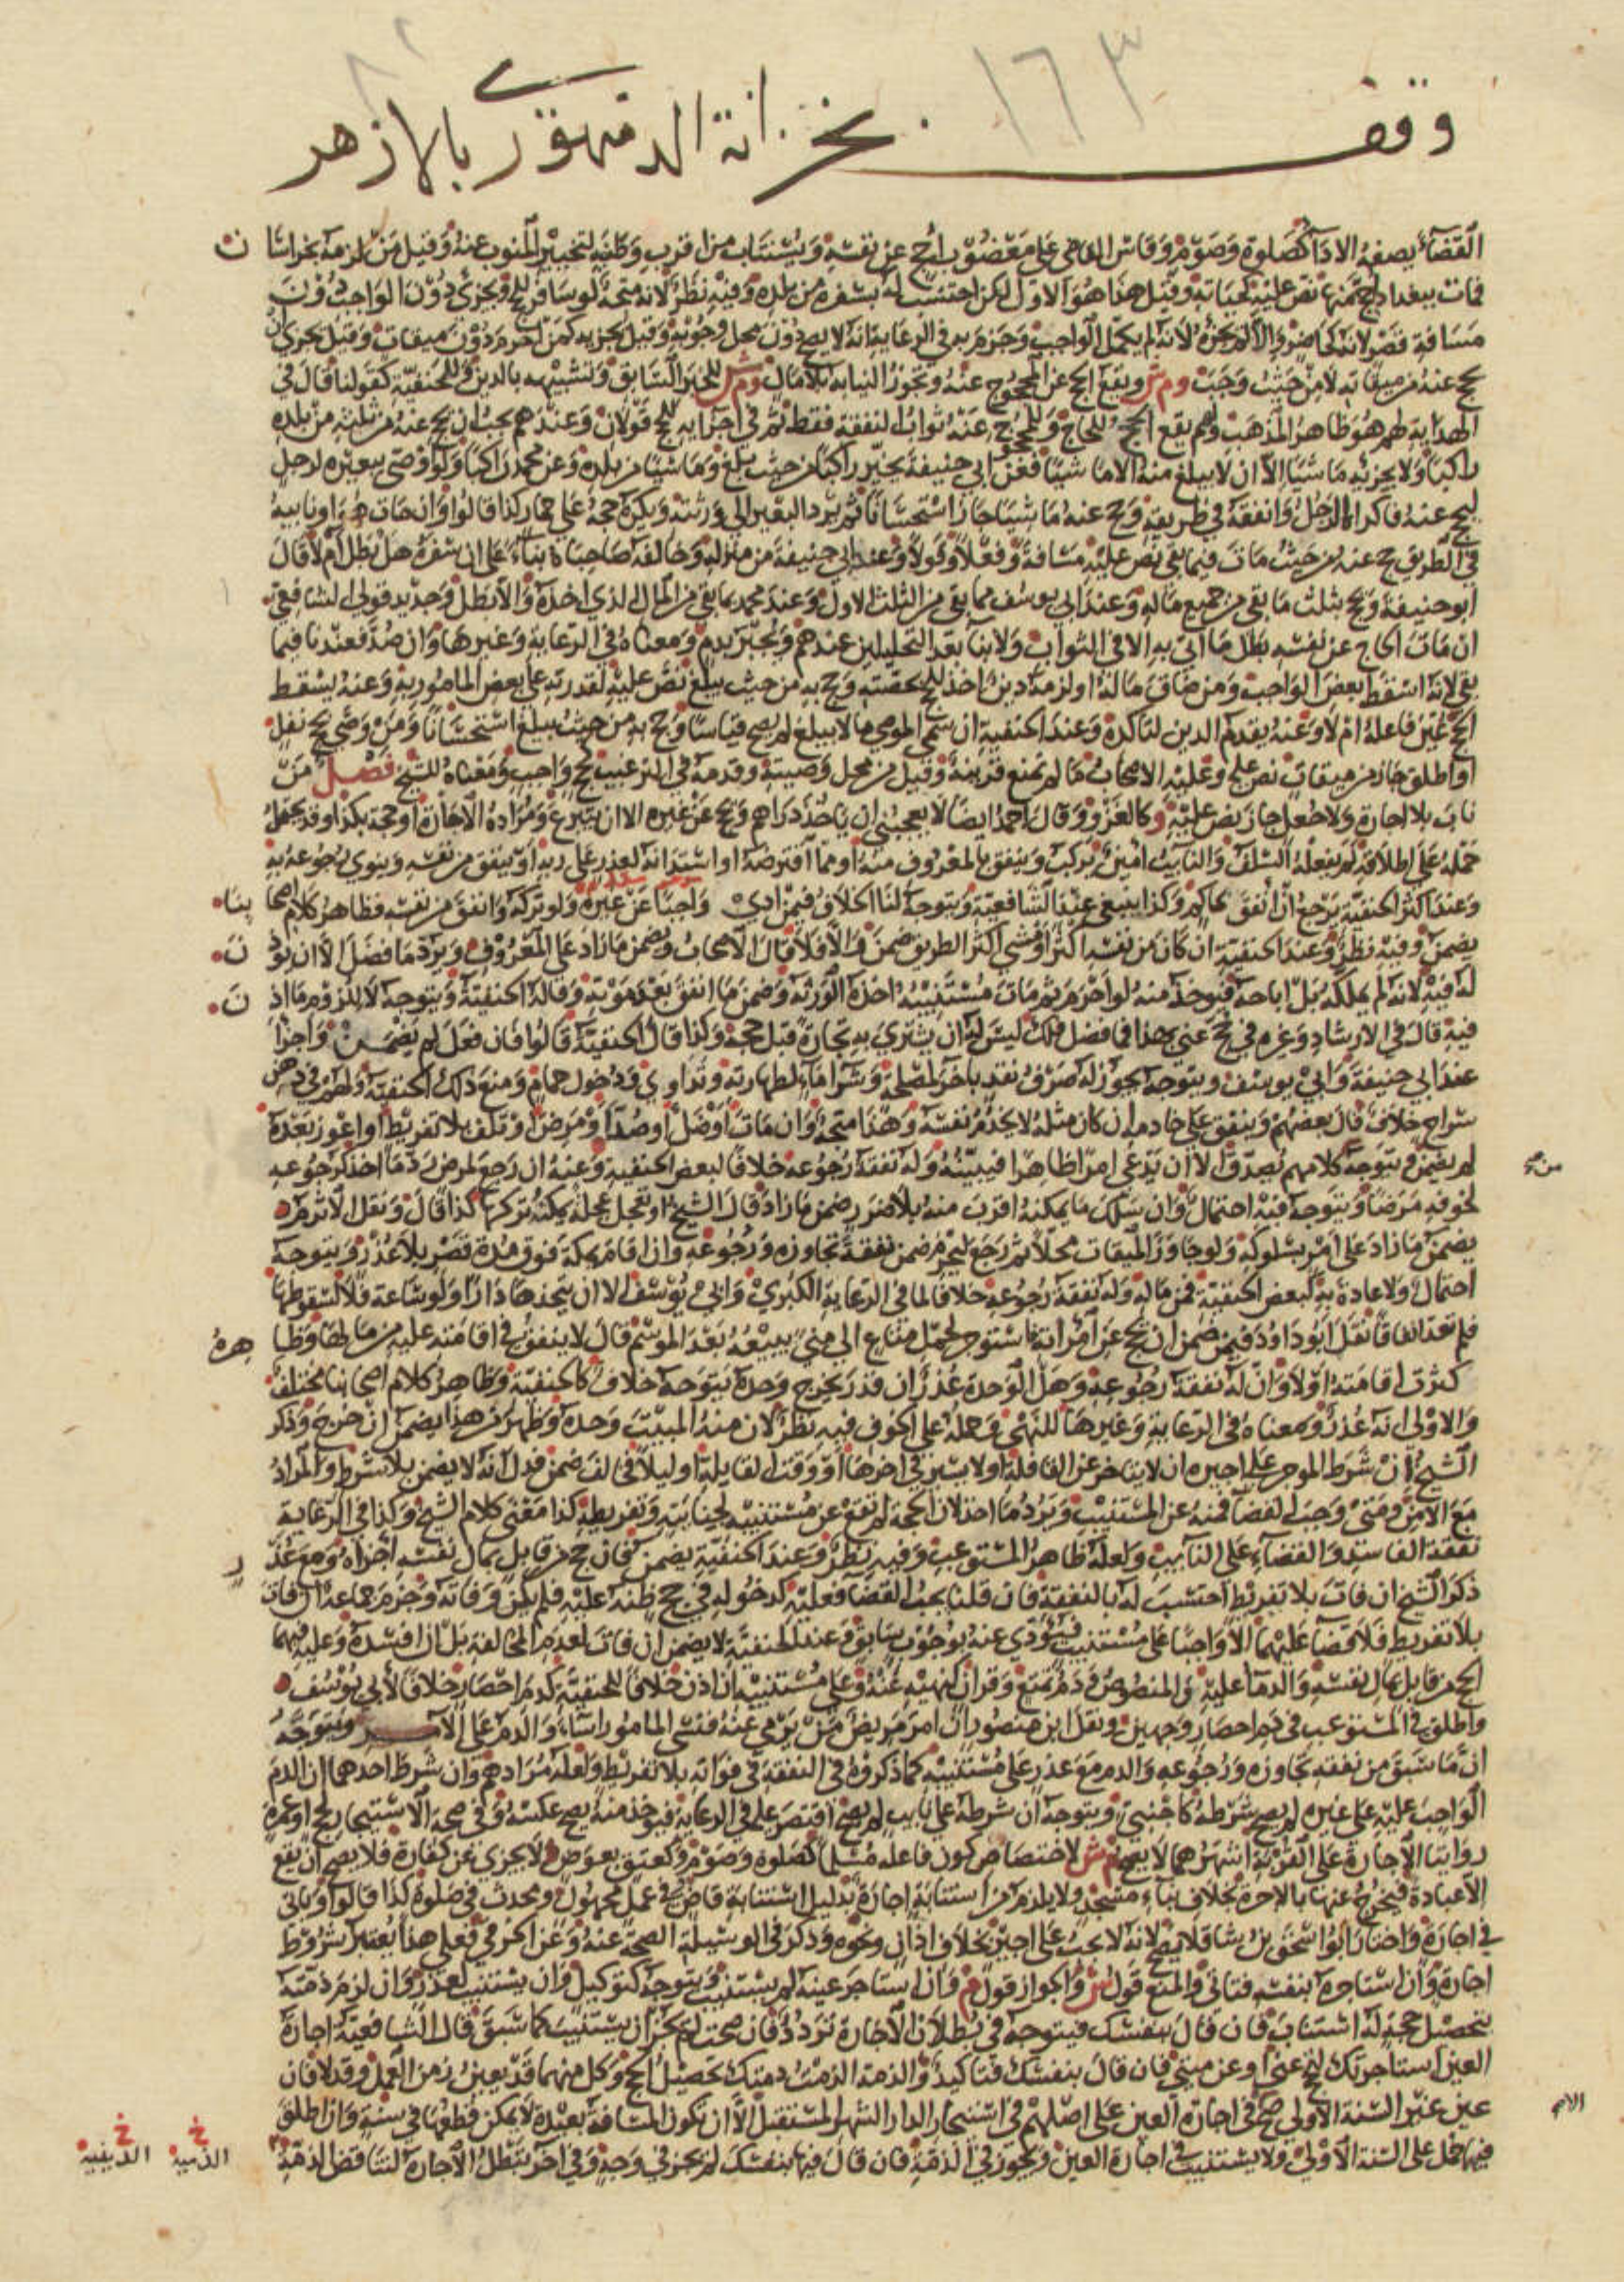 ١٦٣
وقف بخزانة الدمنهوري بالازهر
القضاء بصفة الاداء كصلوة وصوم وقاس القاضي على معضوب احج عن نفسه ويستناب من اقرب وطنيه لتخيير المنوب عنه وقيل من لزمه بخراسان
فمات ببغداد حج منها نص عليه كحياته وقيل هذا هو الاول لكن احتسب له بسفره من بلده وفيه نظر لانه متجه لو سافر للحج ويجزئ دون الواجب دون
مسافة قصر لانه كحاضر والا لم يجزئه لانه لم يكمل الواجب وجزم به في الرعاية انه لا يصح دون محل وجوبه وقيل يجزيه كمن احرم دون ميقات وقيل يجزئ ان
يحج عنه من ميقاته لا من حيث وجب وم ش ويقع الحج عن المحجوج عنه وتجوز النيابة بلا مال وم ش للخبر السابق وتشبيهه بالدين وللحنفية كقولنا قال في
الهداية لهم هو ظاهر المذهب ولهم يقع الحج للحاج وللمحجوج عنه ثواب النفقة فقط ثم في اجزائه للحج قولان وعندهم يجب ان يحج عنه من ثلثه من بلده
راكبا ولا يجزئه ماشيا الا ان لا يبلغ منه الا ماشيا فعن ابي حنيفة يخير راكبا من حيث بلغ وماشيا من بلده وعن محمد راكبا ولو اوصى ببعيره لرجل
ليحج عنه فاكراه الرجل وانفقه في طريقه وحج عنه ماشيا جاز استحسانا ثم يرد البعير الى ورثته ويكره حجه على حمار كذا قالوا وان مات هو او نايبه
في الطريق حج عنه من حيث مات فيما بقي نص عليه مسافة وفعلا وقولا وعند ابي حنيفة من منزله وخالفه صاحباه بناء على ان سفره هل بطل ام لا قال
ابو حنيفة ويحج بثلث ما بقي من جميع ماله وعند ابي يوسف مما بقي من الثلث الاول وعند محمد بما بقي من المال الذي اخذه والا بطل وجديد قولي الشافعي
ان مات الحاج عن نفسه بطل ما اتى به الا في الثواب ولا بناء بعد التحليلين عندهم ويجبر بدم ومعناه في الرعاية وغيرها وان صد فعندنا فيما
بقي لانه اسقط بعض الواجب ومن ضاق ماله او لزمه دين اخذ للحج بحصته وحج به من حيث يبلغ نص عليه لقدرته على بعض المامور به وعنه يسقط
الحج عين فاعله ام لا وعنه يقدم الدين لتاكده وعند الحنفية ان سمى الموصي ما لا يبلغ لم يصح قياسا وحج به من حيث يبلغ استحسانا ومن وصى بحج نفل
او اطلق جاز من ميقات نص عليه وعليه الاصحاب ما لم تمنع قرينة وقيل من محل وصيته وقدمه في الترغيب كحج واجب ومعناه للشيخ فصل من
ناب بلا اجارة ولا جعل جاز نص عليه وكالغزو وقال احمد ايضا لا يعجبني ان ياخذ دراهم ويحج عن غيره الا ان يتبرع ومراده الاجارة او حجة بكذا وقد يحتمل
حمله على اطلاقه لم يفعله السلف والنايب امين يركب وينفق بالمعروف منه او مما اقترضه او استدانه لعذر على ربه او ينفق من نفسه وينوي رجوعه به
وعند اكثر الحنفية يرجع ان انفق بحاكم وكذا ينبغي عند الشافعية ويتوجه لنا الخلاف فيمن ادى واجبا عن غيره ولو تركه وانفق من نفسه فظاهر كلام اصحابنا
يضمن وفيه نظر وعند الحنفية ان كان من نفسه اكثر او مشى اكثر الطريق ضمن والا فلا قال الاصحاب ويضمن ما زاد على المعروف ويرد ما فضل الا ان يوذن
له فيه لانه لم يملكه بل اباحه فيوخذ منه لو احرم ثم مات مستنيبه اخذه الورثة وضمن ما انفق بعد موته وقاله الحنفية ويتوجه لا للزوم ما اذن
فيه قال في الارشاد وغيره في حج عني بهذا فما فضل فلك ليس له ان يشتري به تجارة قبل حجه وكذا قال الحنفية قالوا فان فعل لم يضمن واجزا
عند ابي حنيفة وابي يوسف ويتوجه يجوز له صرف نقد باخر لمصلحة وشراء ماء لطهارته وتداوي ودخول حمام ومنع ذلك الحنفية ولهم في دهن
سراج خلاف قال بعضهم وينفق على خادمه ان كان مثله لا يخدم نفسه وهذا متجه وان مات او ضل او صد او مرض او تلف بلا تفريط او اعوز بعده
لم يضمن ويتوجه من كلامهم يصدق الا ان يدعي امرا ظاهرا فيبينه وله نفقة رجوعه خلافا لبعض الحنفية وعنه ان رجع لمرض رد ما اخذ كرجوعه
لخوفه مرضا ويتوجه فيه احتمال وان سلك ما يمكنه اقرب منه بلا ضرر ضمن ما زاد قال الشيخ او تعجل عجلة يمكنه تركها كذا قال ونقل الاثرم
يضمن ما زاد على امر بسلوكه ولو جاوز الميقات محلا ثم رجع ليحرم ضمن نفقة تجاوزه ورجوعه وان اقام بمكة فوق مدة قصر بلا عذر ويتوجه
احتمال ولا عادة به كبعض الحنفية فمن ماله وله نفقة رجوعه خلافا لما في الرعاية الكبرى وابي يوسف الا ان يتخذها دارا ولو ساعة فلا لسقوطها
فلم تعد اتفاقا نقل ابو داود فيمن ضمن ان يحج عن امراة فاستوجر لحمل متاع الى منى يبيعه بعد الموسم قال لا ينفق في اقامته عليه من مالها وظاهره
كثرت اقامته اولا وان له نفقة رجوعه وهل الوحدة عذر ان قدر يخرج وحده يتوجه خلاف كالحنفية وظاهر كلام اصحابنا مختلف
والاولى انه عذر ومعناه في الرعاية وغيرها للنهي وحمله على الخوف فيه نظر لان منه المبيت وحده وظهر من هذا يضمن ان خرج وذكر
الشيخ ان شرط الموجر على اجيره ان لا يتاخر عن القافلة او لا يسير في اخرها او وقت القايلة او ليلا فخالف ضمن فدل انه لا يضمن بلا شرط والمراد
مع الامن ومتى وجب القضاء فمنه عن المستنيب ويرد ما اخذ لان الحجة لم تقع عن مستنيبه لجنايته وتفريطه كذا معنى كلام الشيخ وكذا في الرعاية
نفقة الفاسد والقضاء على النايب ولعله ظاهر المستوعب وفيه نظر وعند الحنفية يضمن فان حج من قابل بمال نفسه اجزاه ومع عذر
ذكر الشيخ ان فات بلا تفريط احتسب له بالنفقة فان قلنا يجب القضاء فعليه كدخوله في حج ظنه عليه فلم يكن وفاته وجزم جماعة ان فات
بلا تفريط فلا قضاء عليهما الا واجبا على مستنيب فيؤدي عنه بوجوب سابق وعند الحنفية لا يضمن ان فات لعدم المخالفة بل ان افسده وعليه فيهما
الحج من قابل بمال نفسه والدماء عليه والمنصوص في دم تمتع وقران كنهيه عنه وعلى مستنيبه ان اذن خلافا للحنفية كدم احصار خلافا لأبي يوسف
واطلق في المستوعب في دم احصار وجهين ونقل ابن منصور ان امر مريض من يرمي عنه فنسي المامور اساء والدم على الآمر ويتوجه
ان ما سبق من نفقة تجاوزه ورجوعه والدم مع عذر على مستنيبه كما ذكروه في النفقة في فواته بلا تفريط ولعله مرادهم وان شرط احدهما ان الدم
الواجب عليه على غيره لم يصح شرطه كاجنبي ويتوجه ان شرطه على نايب لم يصح اقتصر عليه في الرعاية فيوخذ منه يصح عكسه وفي صحة الاستيجار لحج او عمرة
روايتا الاجارة على القربة اشهرهما لا يصح وم ش لاختصاص كون فاعله مسلما كصلوة وصوم وكعتق بعوض لا يجزي عن كفارة فلا يصح ان يقع
الا عبادة فيخرج عنها بالاجرة بخلاف بناء مسجد ولا يلزم من استنابة اجارة بدليل استنابة قاض في عمل مجهول ومحدث في صلوة كذا قالوا وياتي
في اجارة واختار ابو اسحق بن شاقلا يصح لانه لا يجب على اجير بخلاف اذان ونحوه وذكر في الوسيلة الصحة عنه وعن الخرقي فعلى هذا يعتبر شروط
اجارة وان استاجره بنفسه فتاتي والمنع قول ش والجواز قول م وان استاجر عينه لم يستنب ويتوجه كتوكيل وان يستنيب لعذر وان لزم ذمته
بتحصيل حجة له استناب فان قال بنفسك فيتوجه في بطلان الاجارة تردد فان صحت لم يجز ان يستنيب كما سبق قال الشافعية اجارة
العين استاجرتك لتحج عني او عن ميتي فان قال بنفسك فتاكيد والذمة الزمت ذمتك تحصيل الحج وكل منهما قد يعين زمن العمل وقد لا فان
عين غير السنة الاولى صح في اجارة العين على اصلهم في استيجار الدار الشهر المستقبل الا ان تكون المسافة بعيدة لا يمكن قطعها في سنة وان اطلق
فيهما حمل على السنة الاولى ولا يستنيب في اجارة العين ويجوز في الذمة فان قال فيها بنفسك لم يجز في وجه وفي اخر تبطل الاجارة لتناقض الذمة
خ الذمية
خ الدينية